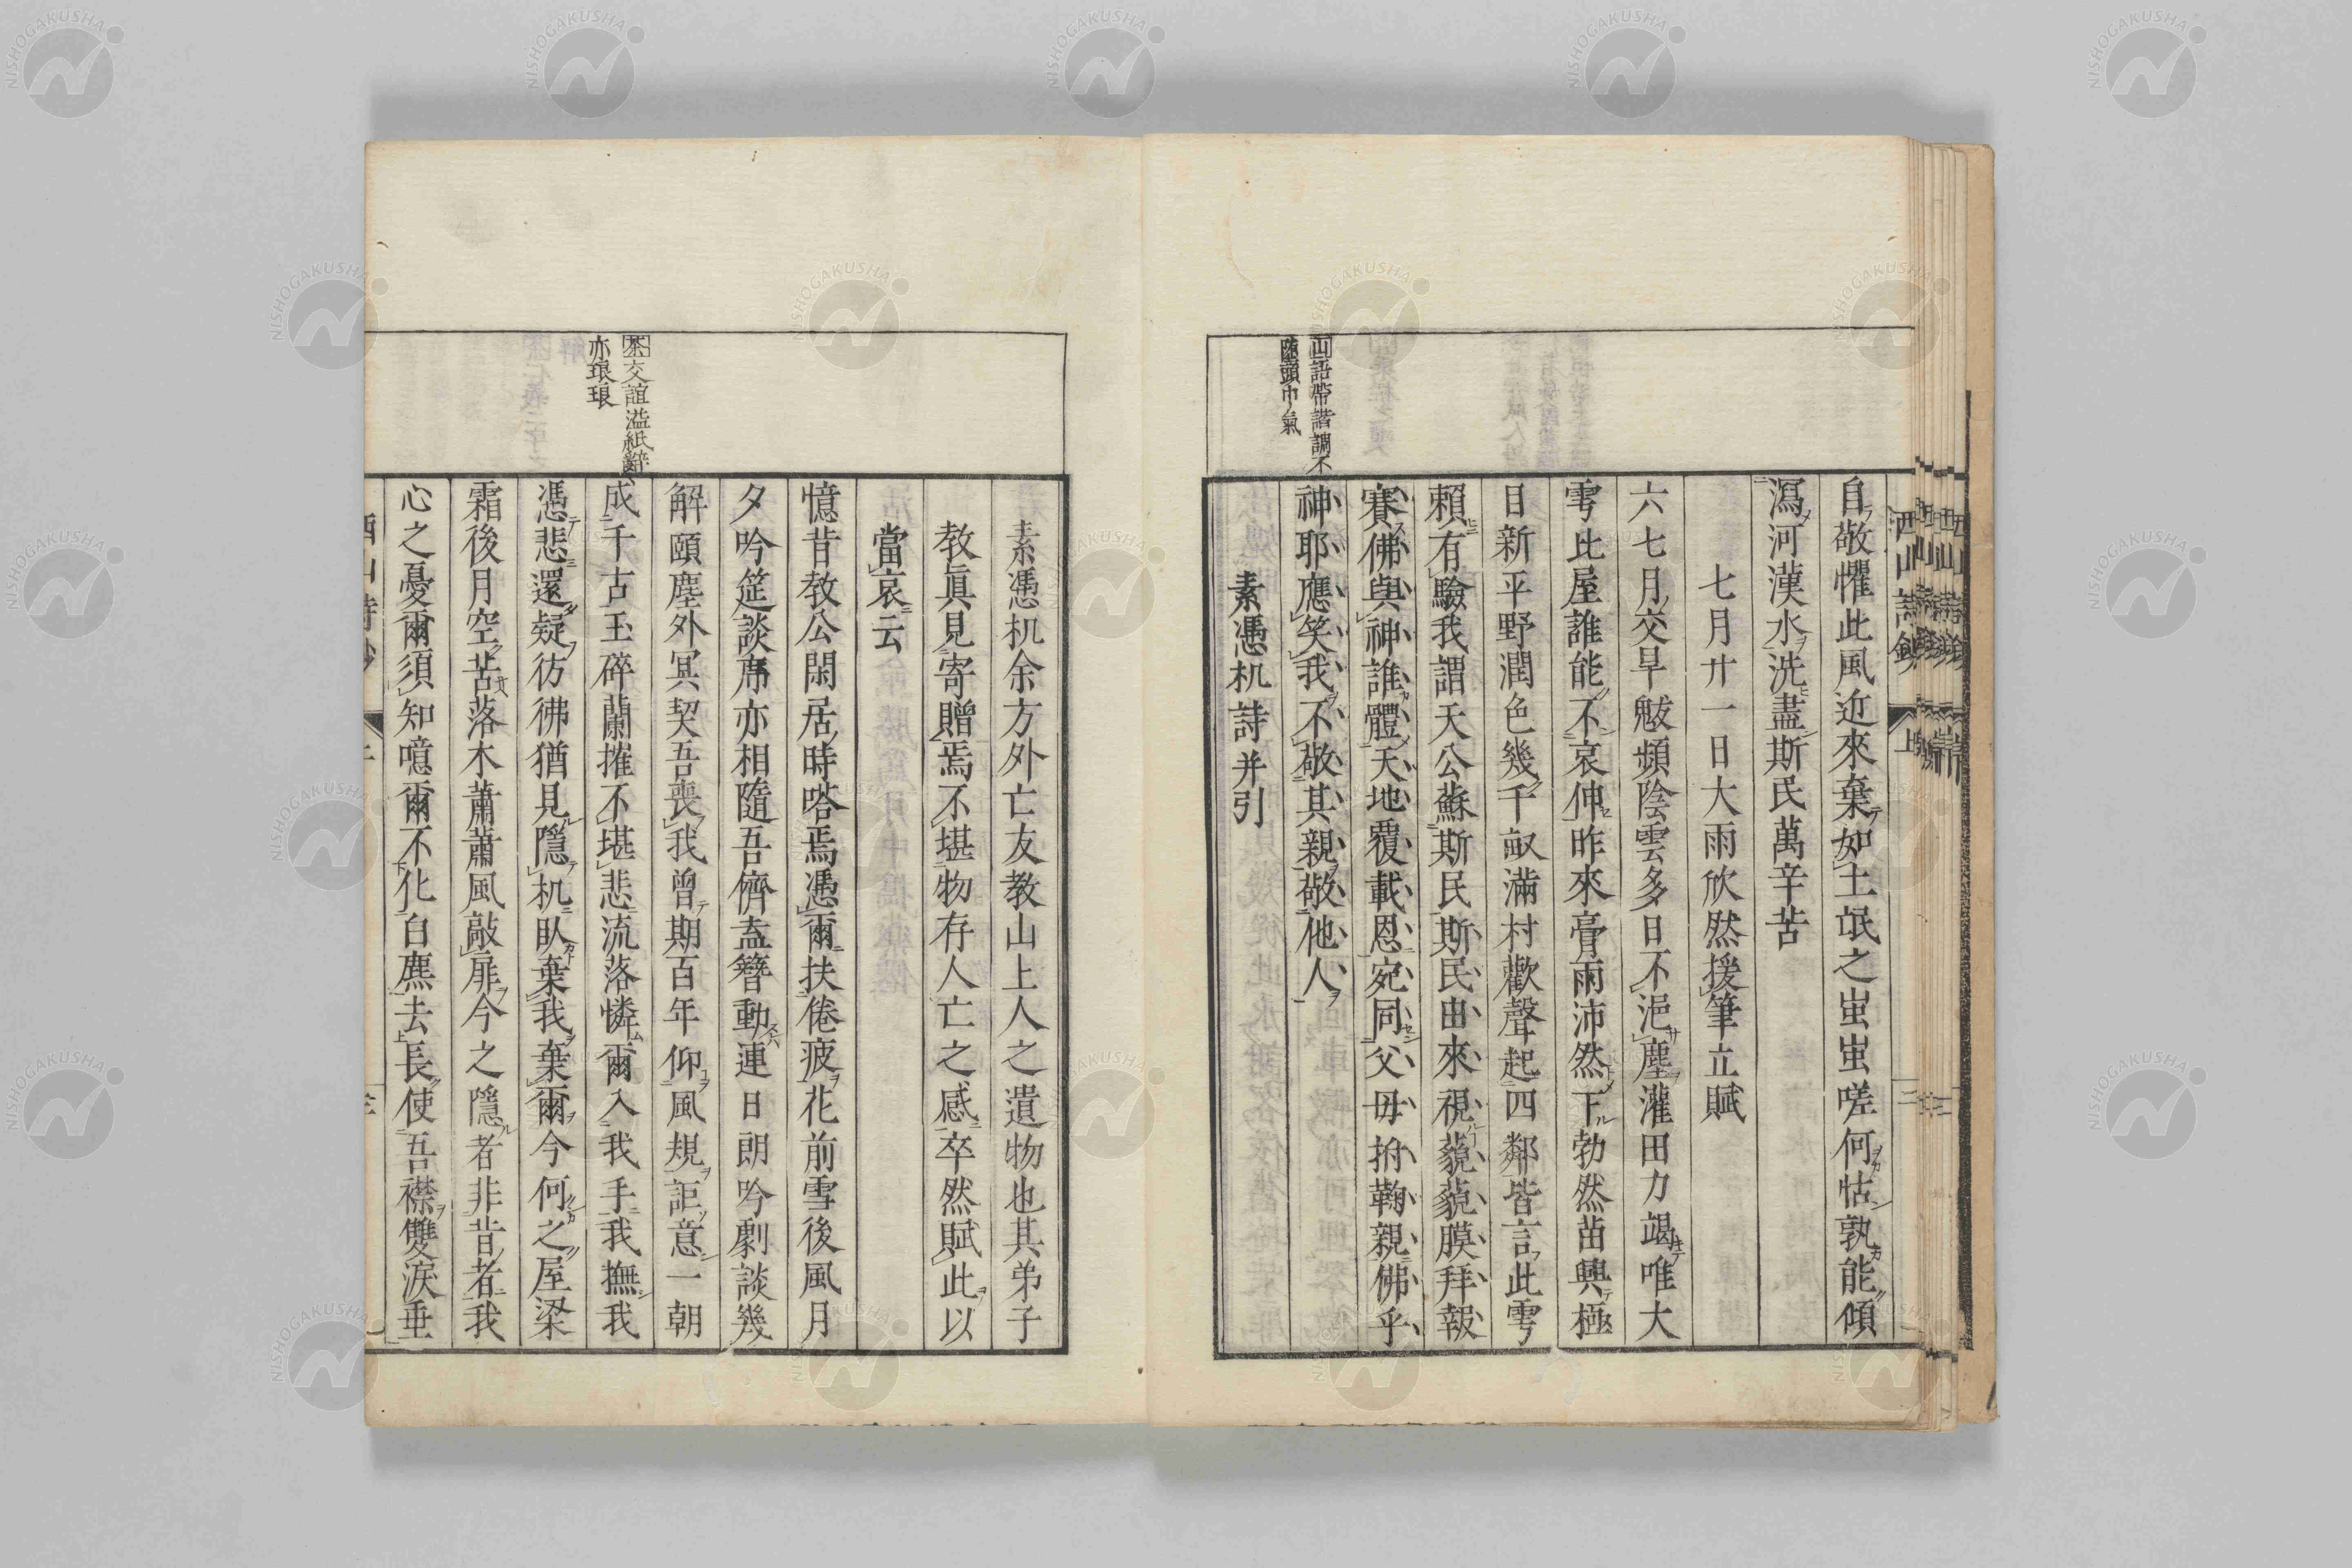 自敬懼此風近來棄如土氓之蚩蚩嗟何怙孰能傾
瀉河漢水洗盡斯民萬辛苦
七月廿一日大雨欣然援筆立賦
六七月交旱魃頻陰雲多日不浥塵灌田力竭唯大
雩比屋誰能不哀伸昨來膏雨沛然下勃然苗興極
日新平野潤色幾千畝滿村歡聲起四鄰皆言此雩
賴有驗我謂天公蘇斯民斯民由來視藐藐膜拜報
賽佛與神誰體天地覆載恩宛同父母拊鞠親佛乎
神耶應笑我不敬其親敬他人
山語帶諧謔不
陋頭巾氣
素憑机詩并引
素憑机余方外亡友教山上人之遺物也其弟子
教眞見寄贈焉不堪物存人亡之感卒然賦此以
當哀云
憶昔教公閑居時嗒焉憑爾扶倦疲花前雪後風月
夕吟筵談席亦相隨吾儕盍簪動連日朗吟劇談幾
解頤塵外冥契吾喪我曾期百年仰風規詎意一朝
成千古玉碎蘭摧不堪悲流落憐爾入我手我撫我
交誼溢紙辭
亦琅琅
憑悲還疑彷彿猶見隱机臥棄我棄爾今何之屋梁
霜後月空苦落木蕭蕭風敲扉今之隱者非昔者我
心之憂爾須知噫爾不化白麃去長使吾襟雙淚垂
西山詩鈔
上